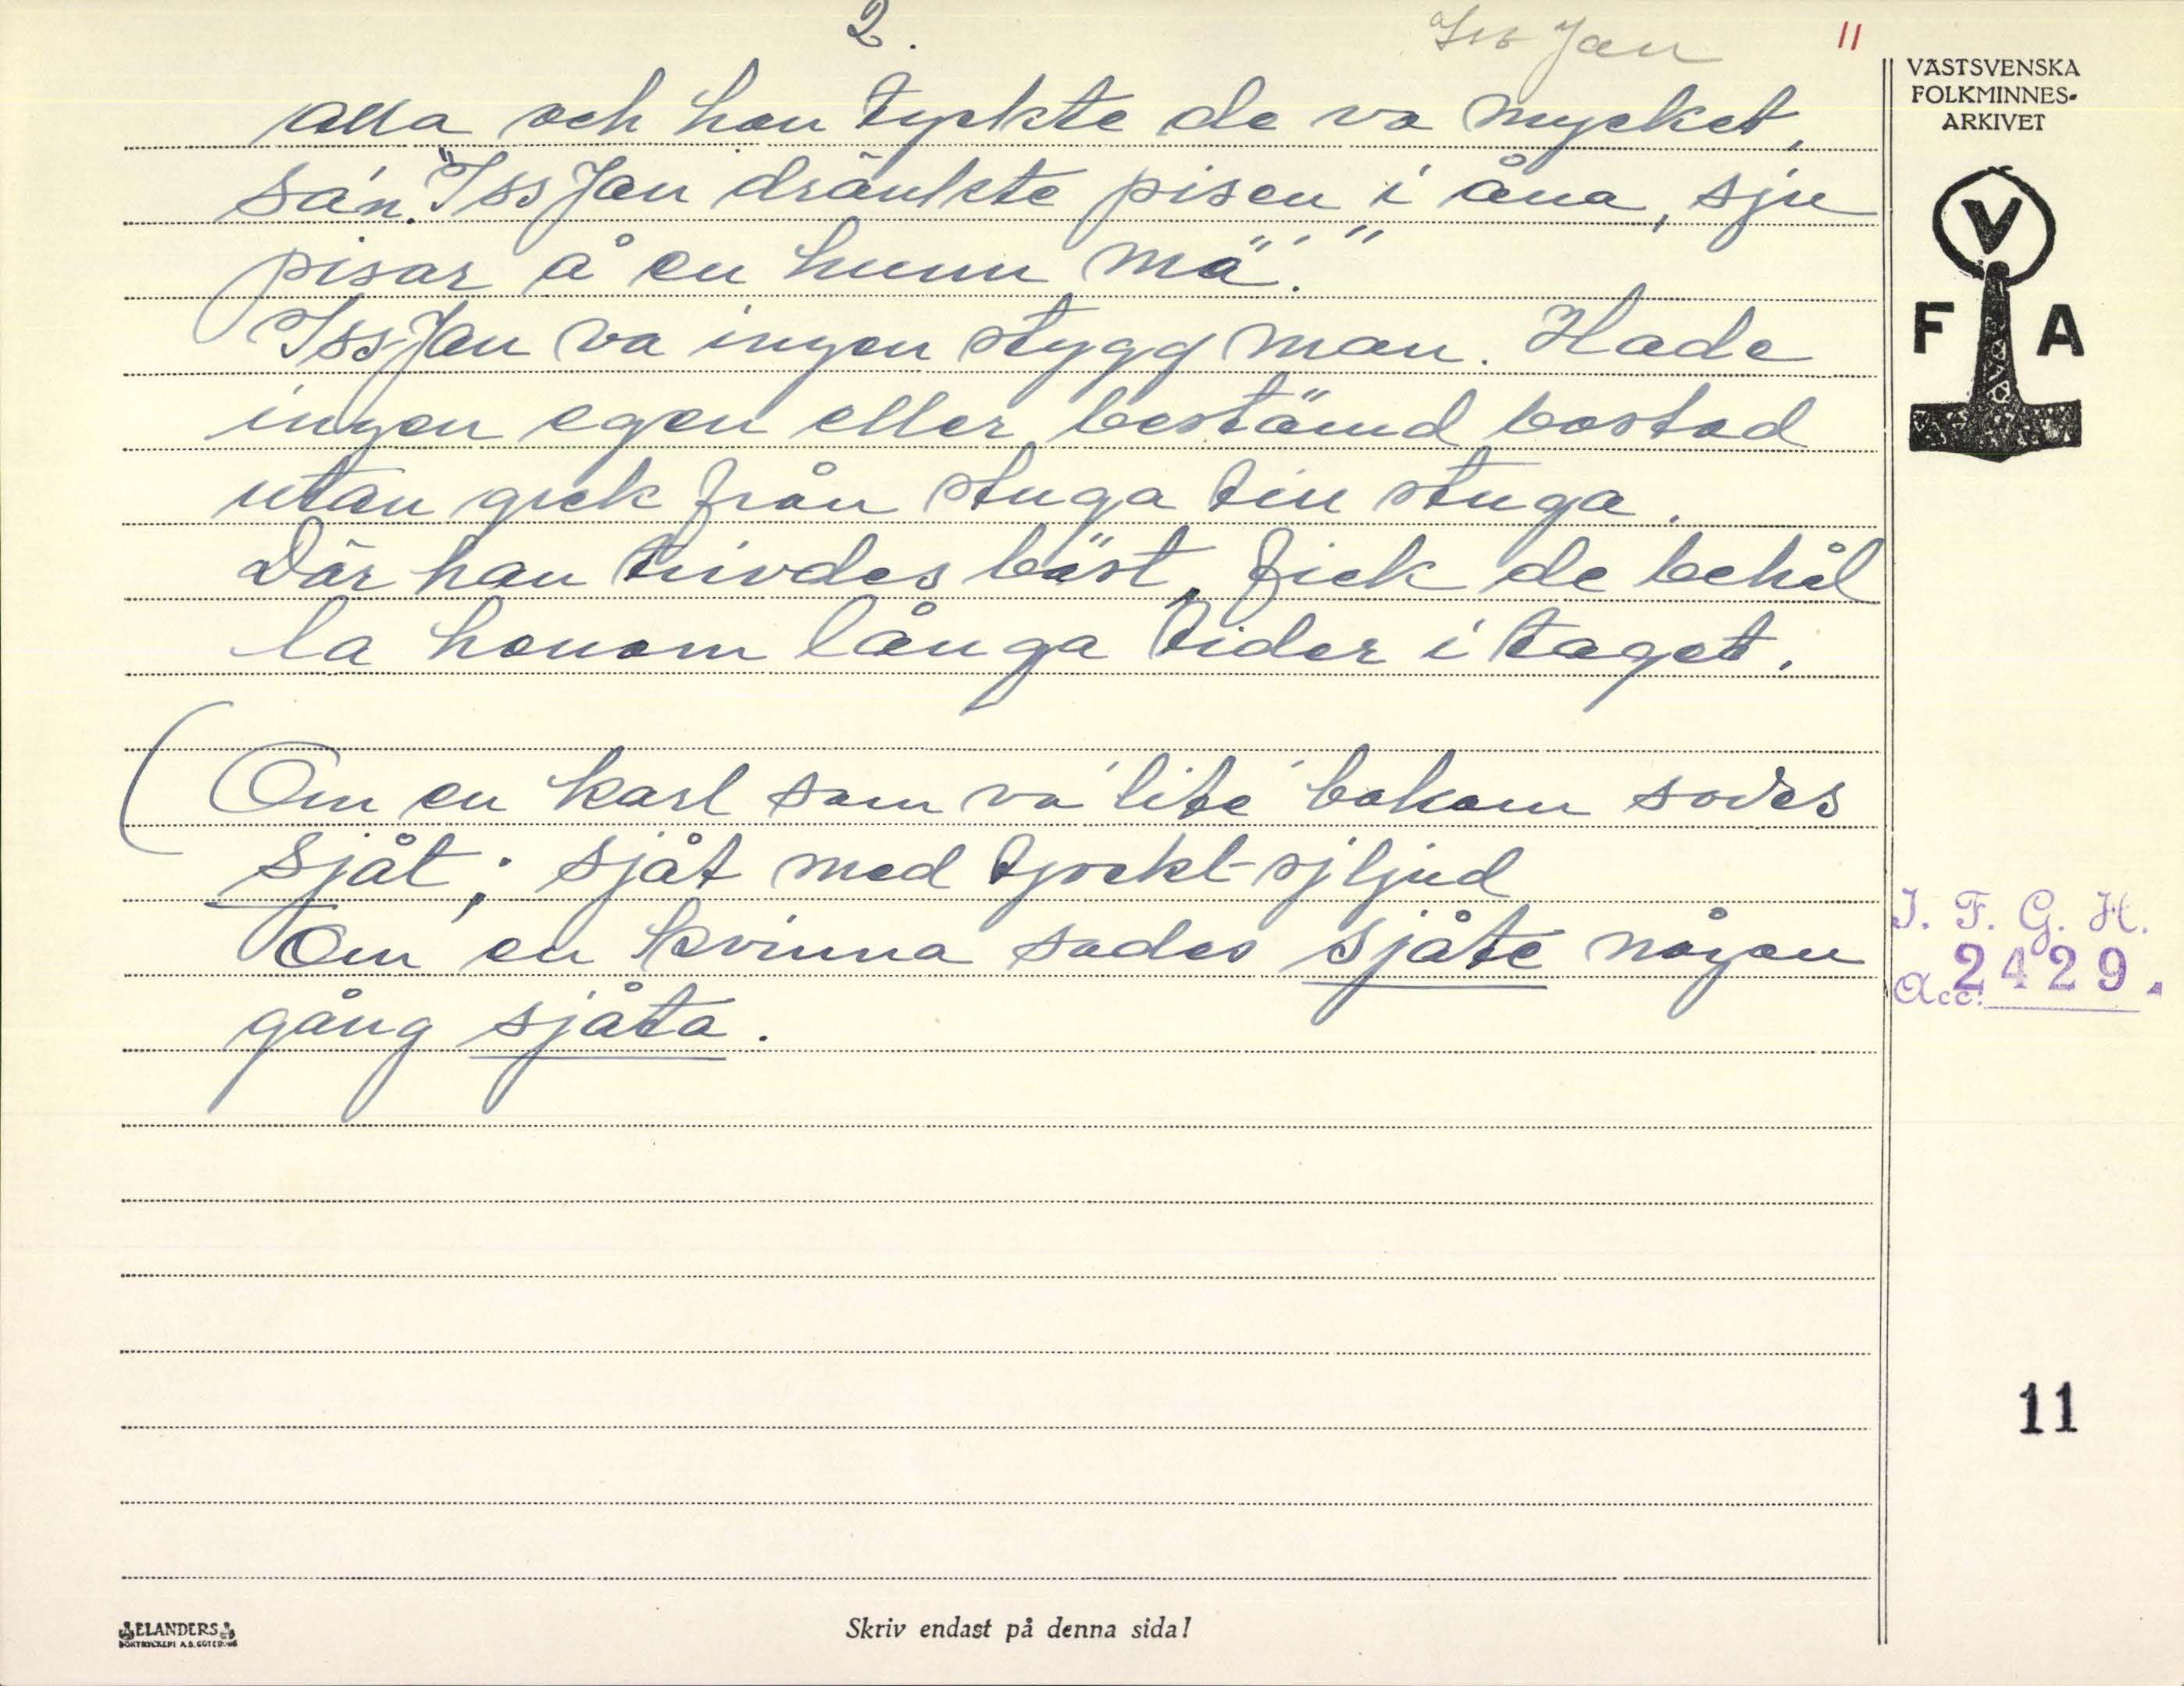 2.
Iss Jan
11
alla och han tyckte de va mycket,
sa'n. "Iss Jan dränkte pisen i åna, sju
pisar å en hunn mä".
Iss Jan va ingen stygg man. Hade
ingen egen eller bestämd bostad
utan gick från stuga till stuga.
Där han trivdes bäst, fick de behål
la honom långa tider i taget.
(Om en karl som va' lite' bakom sades
sjåt; sjåt med tjockt sjljud
Om en kvinna sades sjåte någon
gång sjåta.
VÄSTSVENSKA
FOLKMINNES-
ARKIVET
V
F A
I. F. G. H.
Acc. 2429.
11
ELANDERS
BOKTRYCKERI A.B. GÖTEBORG
Skriv endast på denna sida!